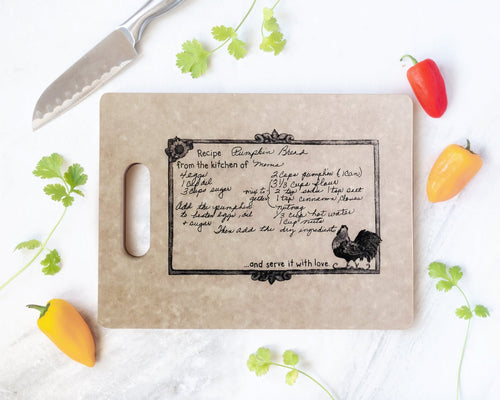 Recipe Pumpkin Bread
from the kitchen of Moms
4 eggs 2 cups pumpkin (1 can)
1 C oil 3 1/3 cups flour
3 cups sugar mix together 2 tsp soda 1 tsp salt
1 tsp cinnamon cloves
Add the pumpkin nutmeg
to beated eggs, oil 2/3 cup hot water
+ sugar 1 cup nuts
Then add the dry ingredients
...and serve it with love